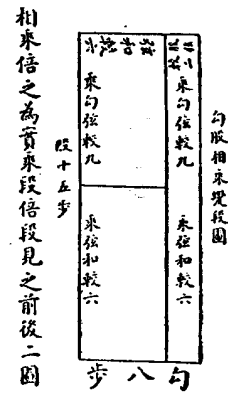 勾股相乘變段圖
乘勾弦較九
乘弦和較六
乘勾弦較九
乘弦和較六
勾八步
股十五步
相乘倍之為實乘段倍段見之前後二圖